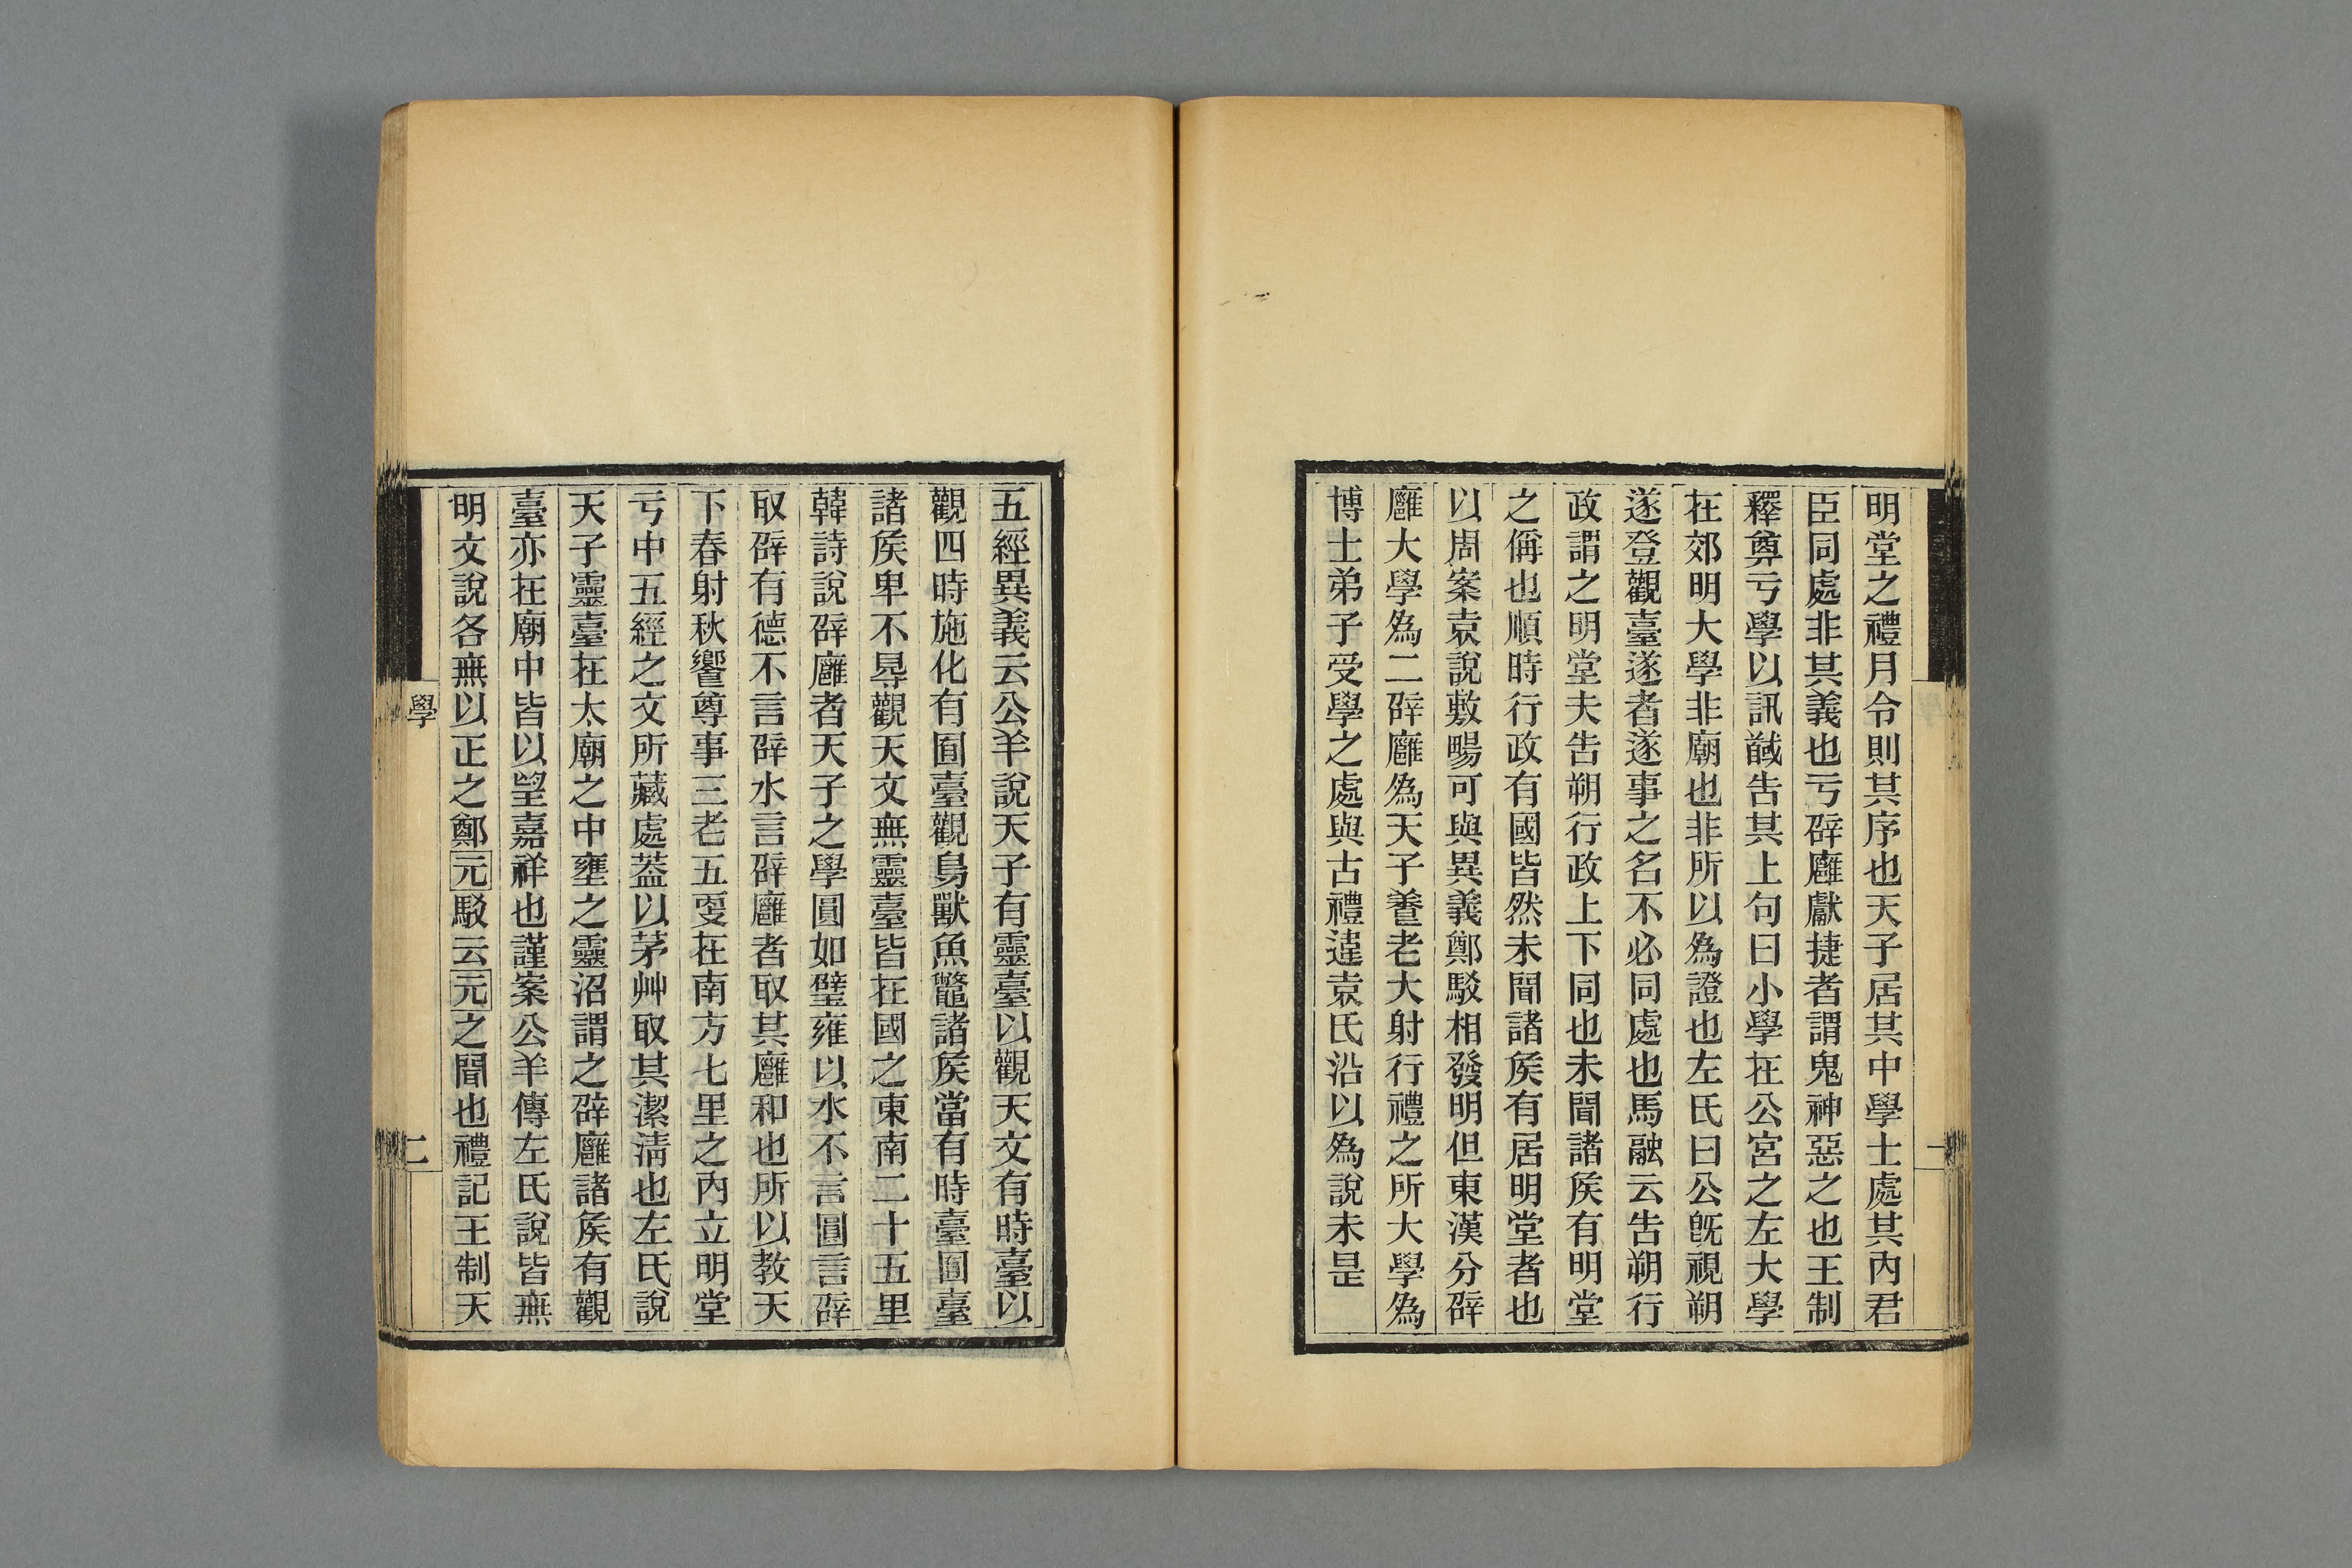 明堂之禮月令則其序也天子居其中學士處其內君
臣同處非其義也亏辟廱獻捷者謂鬼神惡之也王制
釋奠亏學以訊馘告其上句曰小學在公宮之左大學
在郊明大學非廟也非所以為證也左氏曰公旣視朔
遂登觀臺遂者遂事之名不必同處也馬融云告朔行
政謂之明堂夫告朔行政上下同也未聞諸矦有明堂
之偁也順時行政有國皆然未聞諸矦有居明堂者也
以周案袁說敷暢可與異義鄭駁相發明但東漢分辟
廱大學為二辟廱為天子養老大射行禮之所大學為
博士弟子受學之處與古禮違袁氏沿以為說未是
一
五經異義云公羊說天子有靈臺以觀天文有時臺以
觀四時施化有囿臺觀鳥獸魚鼈諸矦當有時臺囿臺
諸矦卑不㝵觀天文無靈臺皆在國之東南二十五里
韓詩說辟廱者天子之學圓如璧雍以水不言圓言辟
取辟有德不言辟水言辟廱者取其廱和也所以教天
下春射秋饗尊事三老五叟在南方七里之內立明堂
亏中五經之文所藏處葢以茅艸取其潔淸也左氏說
天子靈臺在太廟之中壅之靈沼謂之辟廱諸矦有觀
臺亦在廟中皆以望嘉祥也謹案公羊傳左氏說皆無
明文說各無以正之鄭元駁云元之聞也禮記王制天
學
二